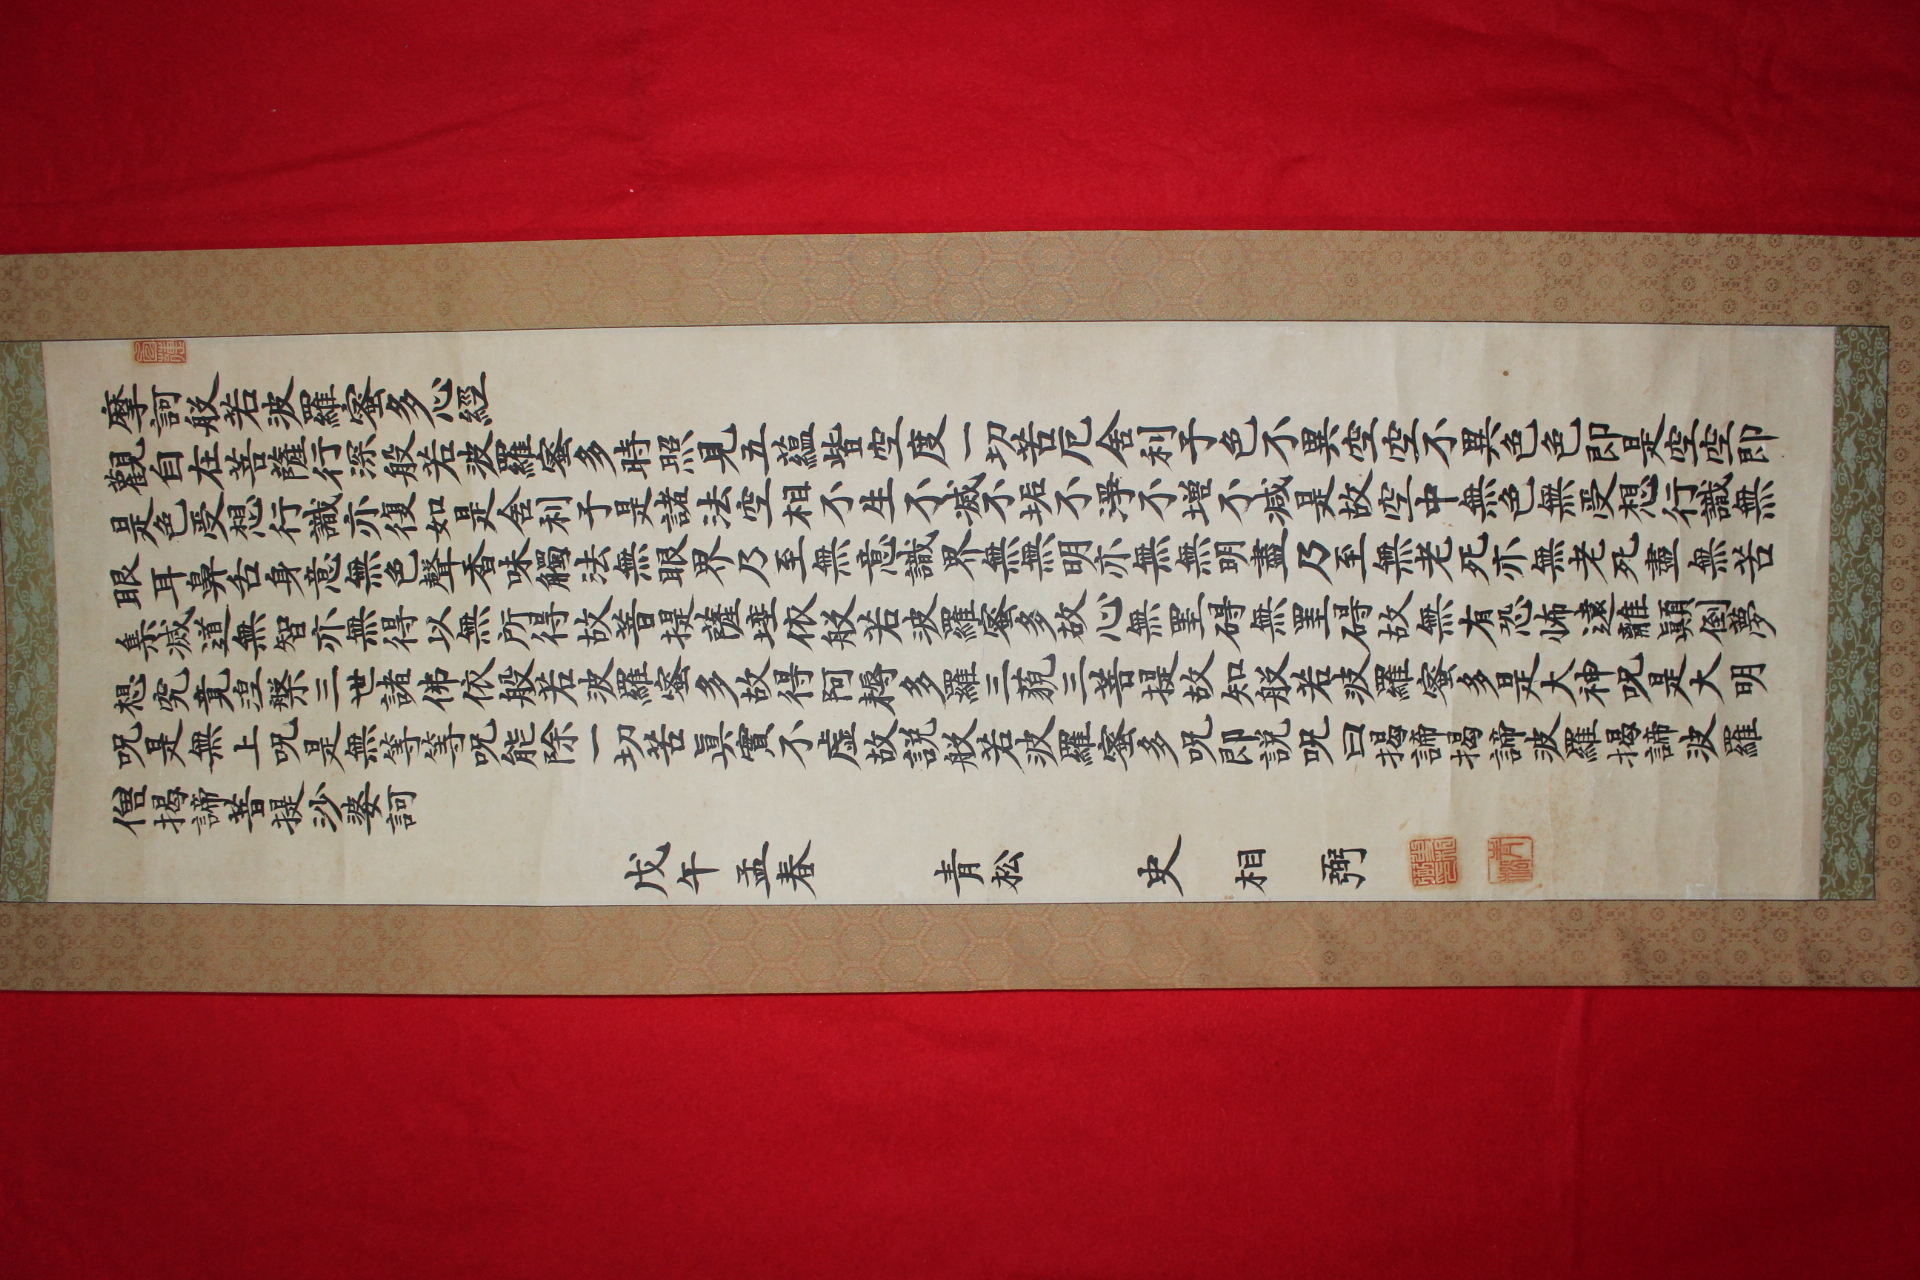 摩訶般若波羅蜜多心經
觀自在菩薩行深般若波羅蜜多時照見五蘊皆空度一切苦厄舍利子色不異空空不異色色即是空空即
是色受想行識亦復如是舍利子是諸法空相不生不滅不垢不淨不增不減是故空中無色無受想行識無
眼耳鼻舌身意無色聲香味觸法無眼界乃至無意識界無無明亦無無明盡乃至無老死亦無老死盡無苦
集滅道無智亦無得以無所得故菩提薩埵依般若波羅蜜多故心無罣碍無罣碍故無有恐怖遠離顚倒夢
想究竟涅槃三世諸佛依般若波羅蜜多故得阿耨多羅三藐三菩提故知般若波羅蜜多是大神呪是大明
呪是無上呪是無等等呪能除一切苦眞實不虛故說般若波羅蜜多呪即說呪曰揭諦揭諦波羅揭諦波羅
僧揭諦菩提沙婆訶
戊午孟春 青松 史相弼